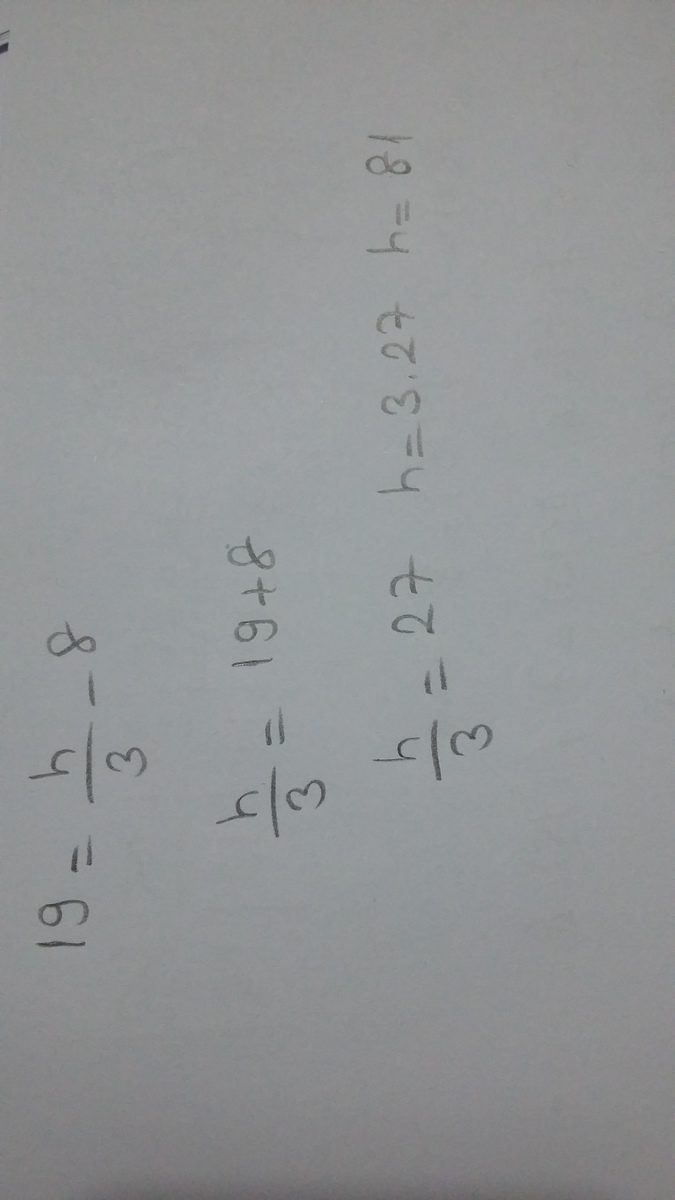 19 = h/3 - 8
h/3 = 19 + 8
h/3 = 27 h = 3.27 h = 81